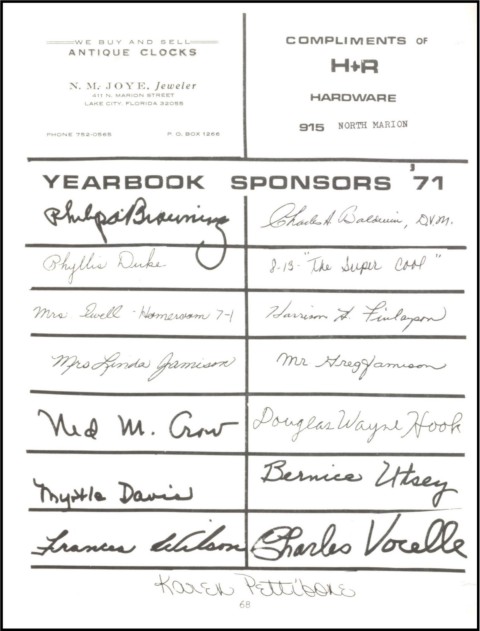 WE BUY AND SELL
ANTIQUE CLOCKS
N. M. JOYE, Jeweler
411 N. MARION STREET
LAKE CITY, FLORIDA 32055
PHONE 752-0565 P. O. BOX 1266
COMPLIMENTS OF
H+R
HARDWARE
915 NORTH MARION
YEARBOOK SPONSORS '71
Browning
Charles A. Baldwin, DVM.
Phyllis Duke
8-13-"The Super Cool"
Mrs. Ewell - Homeroom 7-1
Harrison H. Finlayson
Mrs Linda Jamison
Mr Greg Jamison
Ned M. Crow
Douglas Wayne Hook
Myrtle Davis
Bernice Utsey
Frances Wilson
Charles Vocelle
Karen Pettibone
68